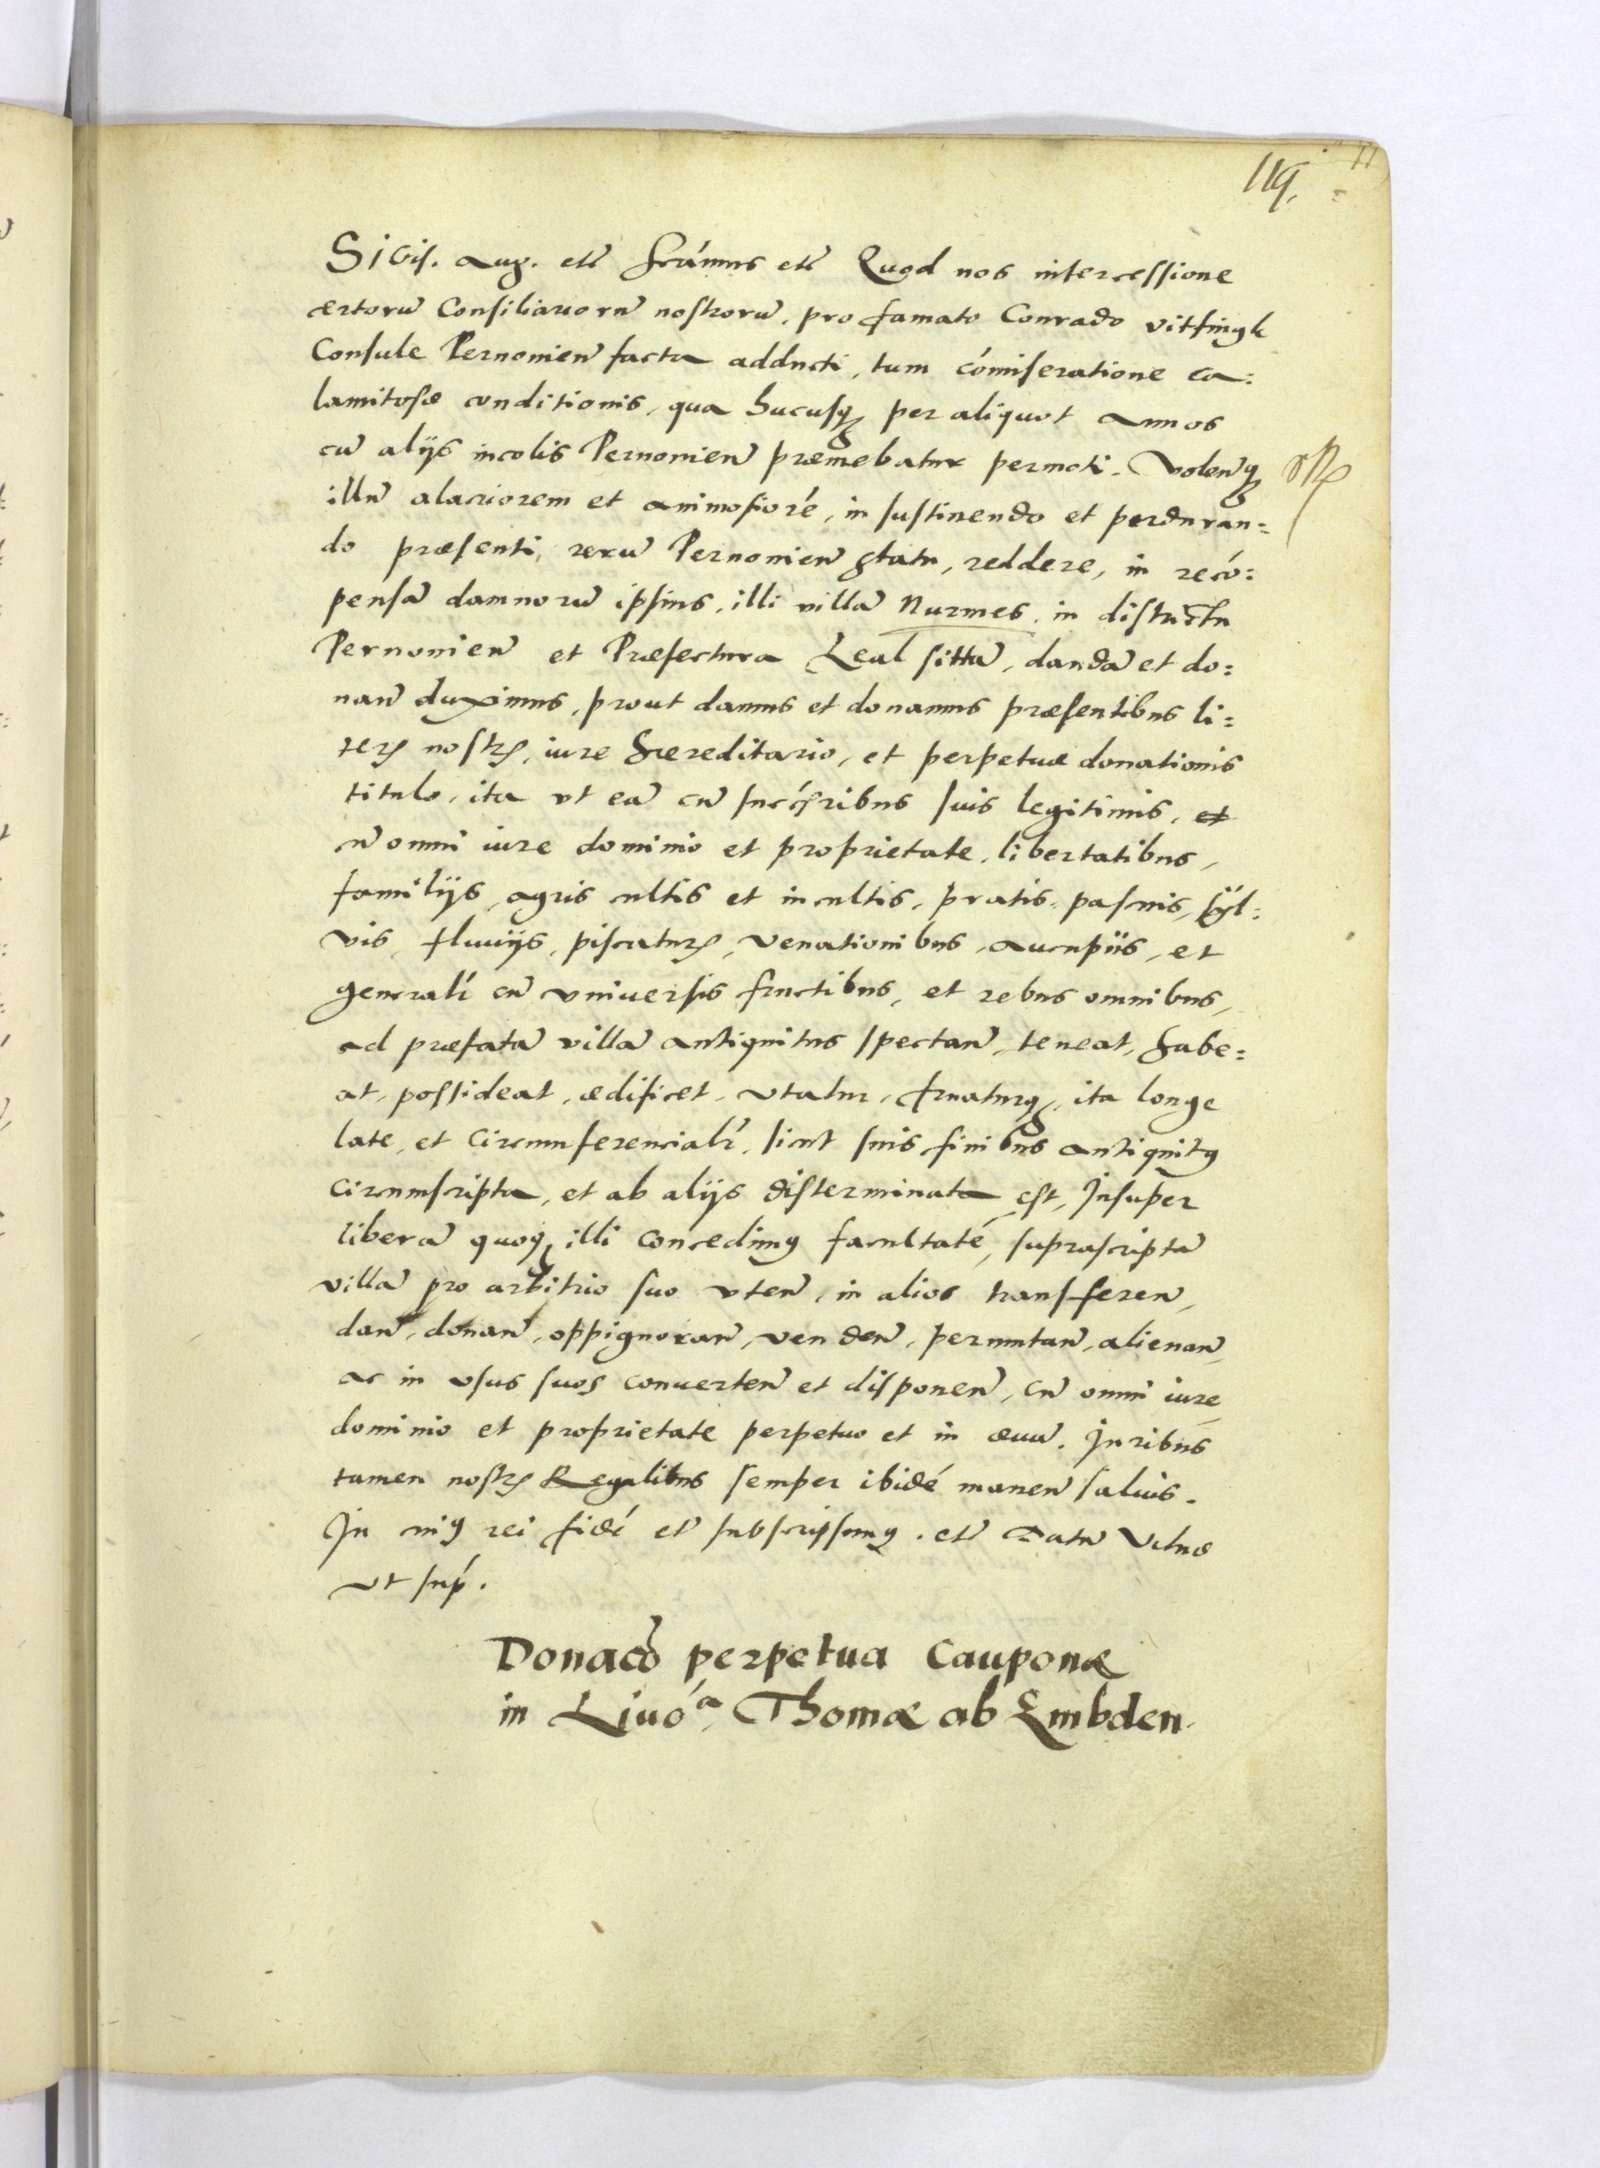 119.
Sigis. Aug. etc̃ scīmus etc̃ Quod nos intercessione
certorũ Consiliariorũ nostrorũ, pro famato Conrado vittingk
Consule Pernonieñ facta adducti, tum cómiseratione ca:
lamitosæ conditionis, qua hucusq́ per aliquot annos
cũ alijs incolis Pernonieñ præmebatur permoti. Volenq́
illũ alacriorem et animosioré, in sustinendo et perduran=
do præsenti, rerũ Pernonieñ statu, reddere, in recó:
pensã damnorũ ipsius, illi villã Nurmes, in districtu
Pernonieñ et Præfectura Leal sittã, dandã et do:
nañ duximus, prout damus et donamus præsentibus li=
teris nostris, iure hæreditario, et perpetuæ donationis
titulo, ita vt eã cũ succ̃ribus suis legitimis, et
cũ omni iure dominio et proprietate, libertatibus,
familijs, agris cultis et incultis, pratis, pascuis, syl:
vis, fluuijs, piscaturis, venationibus, aucupiis, et
generalr̃ cũ vniuersis fructibus, et rebus omnibus,
ad præfatã villã antiquitus spectañ, teneat, habe=
at, possideat, ædificet, vtatur, fruaturq́, ita longe
late, et circumferencialr̃, sicut suis finibus antiquitus
circumscripta, et ab alijs disterminata est, Insuper
liberã quoq́ illi concedimus facultaté, suprascriptã
villã pro arbitrio suo vteñ, in alios transfereñ,
dañ, donañ, oppignorañ, vendeñ, permutañ, alienañ,
ac in vsus suos conuerteñ et disponeñ, cũ omni iure
dominio et proprietate perpetuo et in æuũ. Iuribus
tamen nostris Regalibus semper ibidé maneñ saluis.
In cuius rei fidé etc̃ subscripsimus. etc̃ Datũ Vilnæ
vt suṕ.
Donacõ perpetua Cauponæ
in Livóᵃ, Thomæ ab Embden.